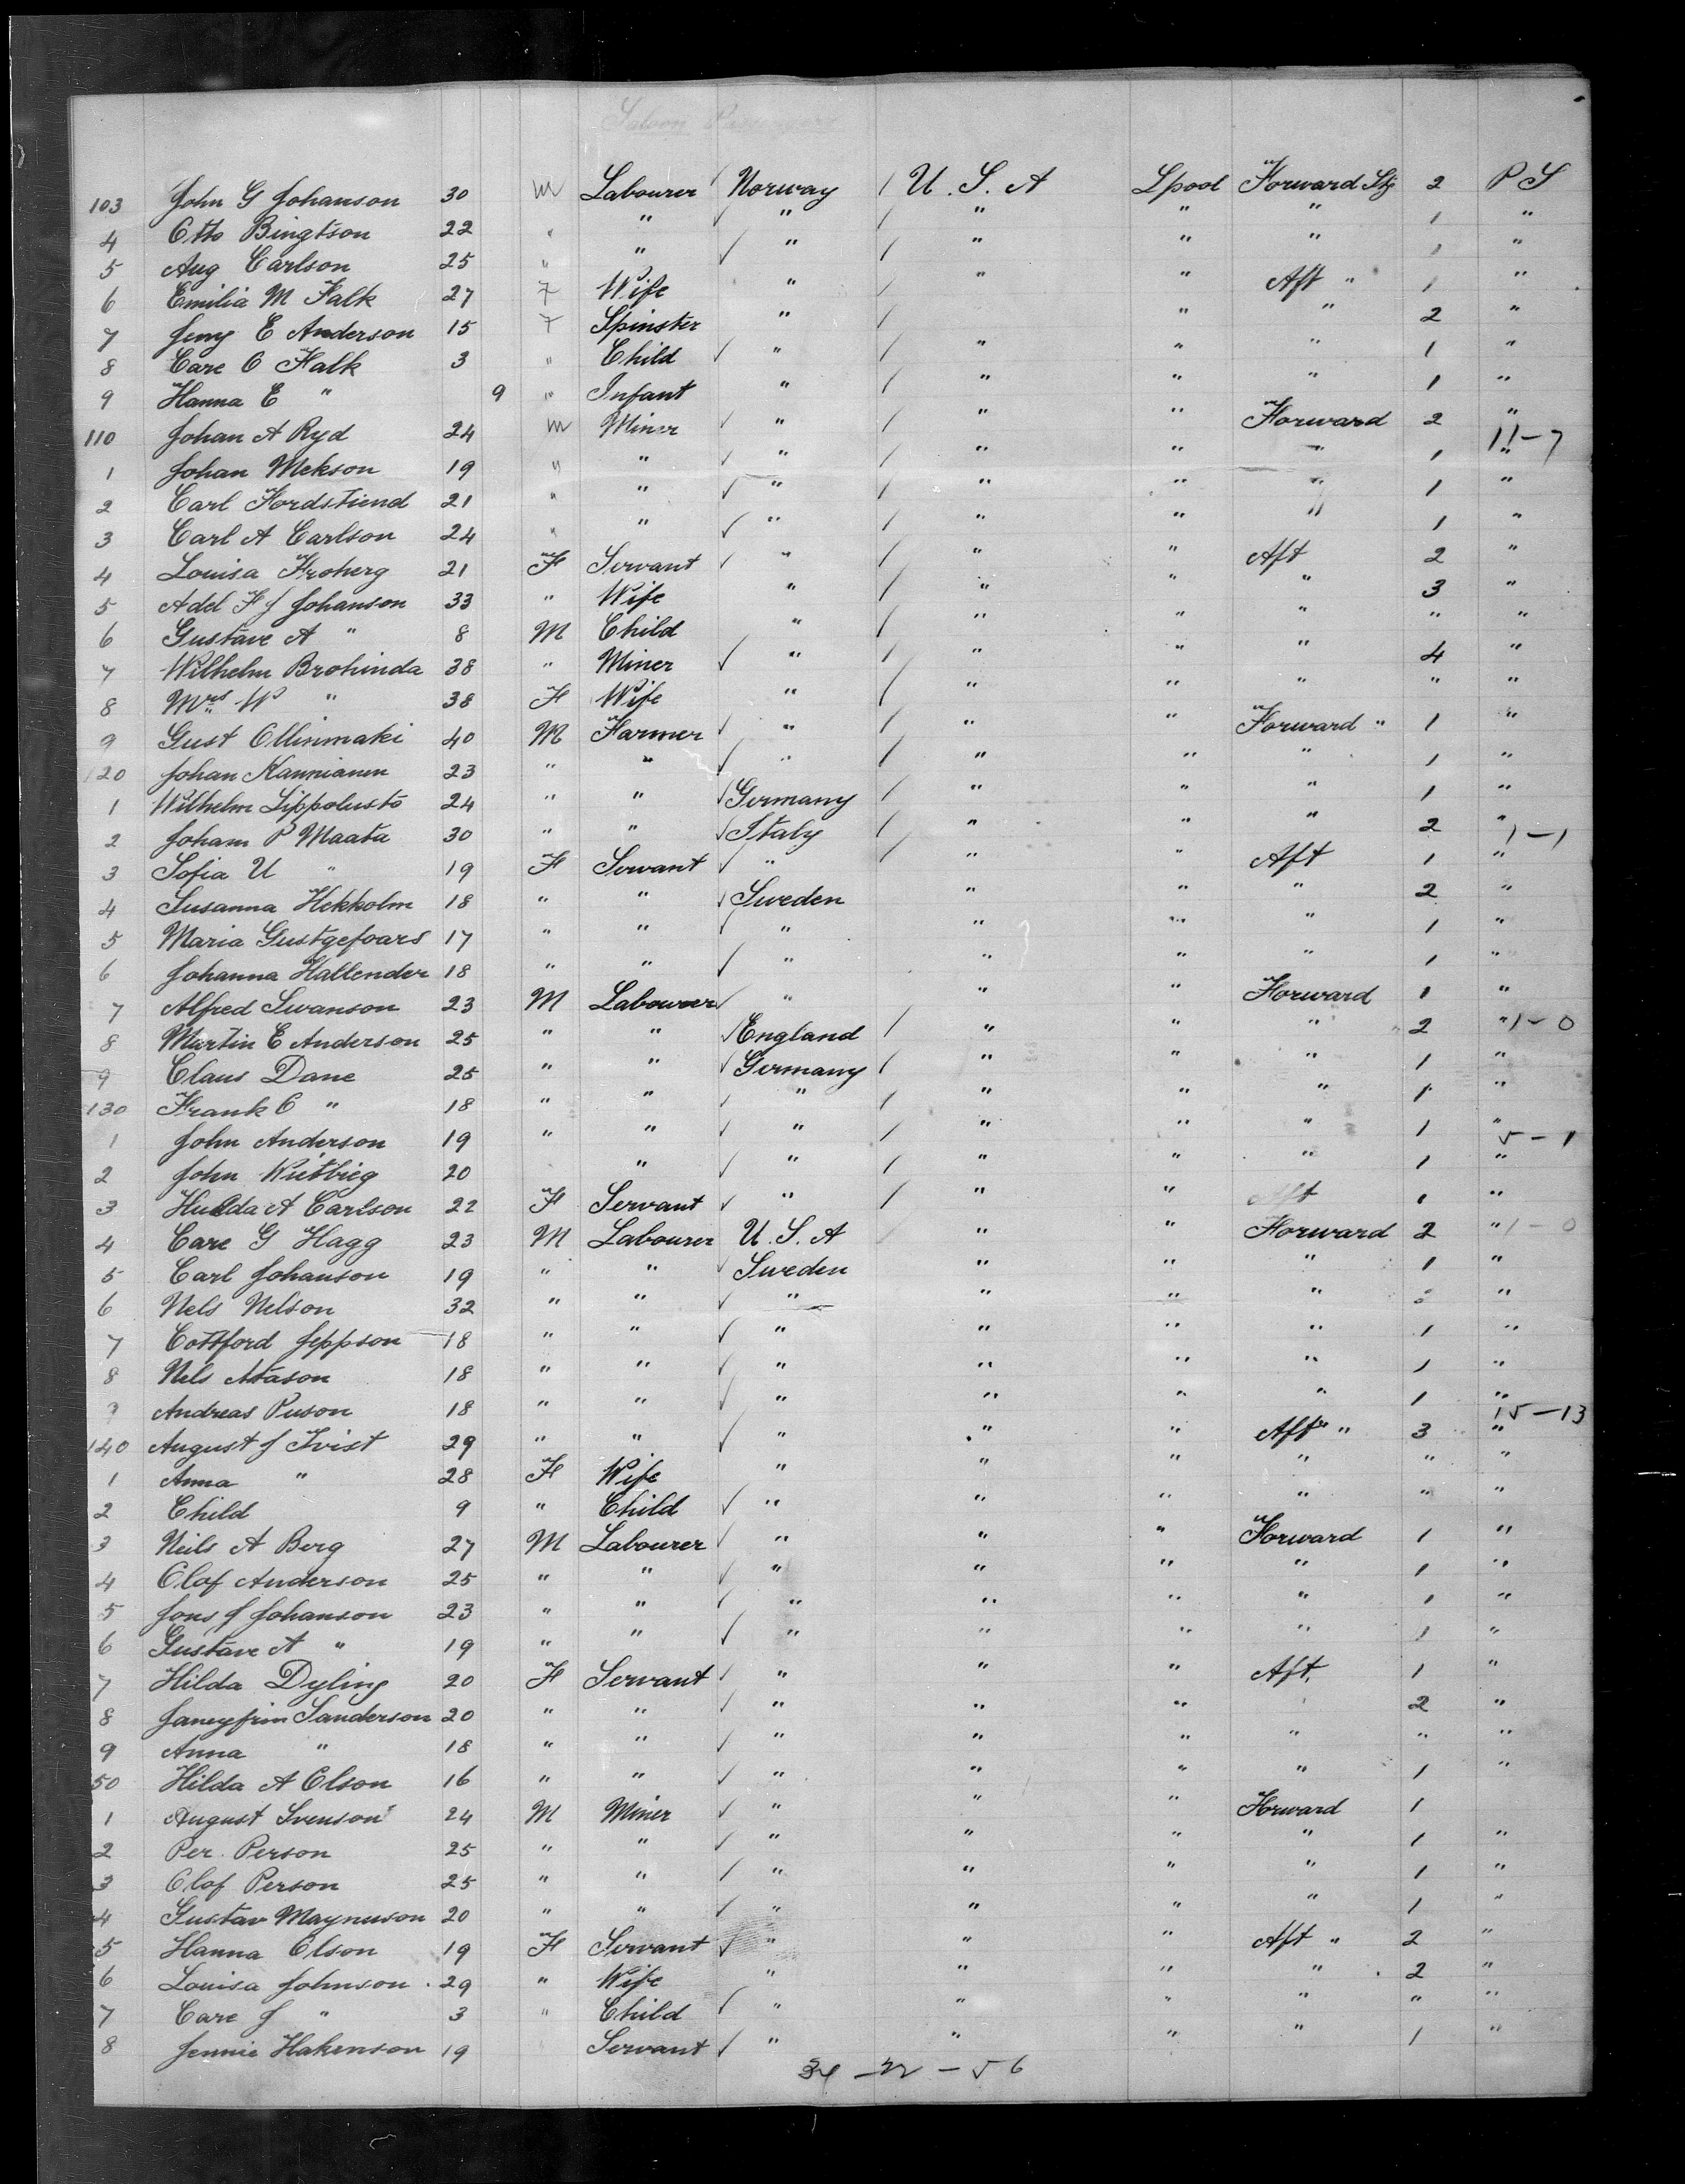 Saloon Passengers
103 John G Johanson 30 m Labourer Norway / U.S.A Lpool Forward Stg 2 P S
4 Otto Bingtson 22 " " ✓ " / " " " 1 "
5 Aug Carlson 25 " " ✓ " / " " " 1 "
6 Emilia M Falk 27 F Wife " / " " Aft " 1 "
7 Jeny E Anderson 15 F Spinster " / " " 2 "
8 Care O Falk 3 " Child ✓ " / " " " 1 "
9 Hanna E " 9 " Infant " / " " " 1 "
110 Johan A Ryd 24 m Miner ✓ " / " " Forward 2 " 11-7
1 Johan Mekson 19 " " ✓ " / " " " 1 "
2 Carl Fordstiend 21 " " ✓ " / " " " 1 "
3 Carl A Carlson 24 " " ✓ " / " " " 1 "
4 Louisa Froherg 21 F Servant ✓ " / " " Aft 2 "
5 Adel F J Johanson 33 " Wife " / " " " 3 "
6 Gustave A " 8 M Child " / " " " " "
7 Wilhelm Brohinda 38 " Miner ✓ " / " " " 4 "
8 Mrs W " 38 F Wife " / " " " " "
9 Gust Ollinmaki 40 M Farmer ✓ " / " " Forward " 1 "
120 Johan Kannianen 23 " " ✓ " / " " " 1 "
1 Wilhelm Lippolusto 24 " " ✓ Germany / " " " 1 "
2 Joham P Maata 30 " " ✓ Italy / " " " 2 " 1-1
3 Sofia U " 19 F Servant ✓ " / " " Aft 1 "
4 Susanna Hekholm 18 " " ✓ Sweden " " " 2 "
5 Maria Gustgefoars 17 " " ✓ " " " 1 "
6 Johanna Hallender 18 " " ✓ " " " " 1 "
7 Alfred Swanson 23 M Labourer ✓ " " " Forward 1 "
8 Martin E Anderson 25 " " ✓ England / " " " 2 " 1-0
9 Claus Dane 25 " " ✓ Germany / " " " 1 "
130 Frank O " 18 " " ✓ " / " " " 1 "
1 John Anderson 19 " " ✓ " / " " " 1 " 5-1
2 John Wietbieg 20 " ✓ " / " " " 1 "
3 Hulda A Carlson 22 F Servant ✓ " / " " Aft 1 "
4 Care G Hagg 23 M Labourer U.S.A " " Forward 2 " 1-0
5 Carl Johanson 19 " " ✓ Sweden " " " 1 "
6 Nels Nelson 32 " " ✓ " " " " "
7 Cottford Jeppson 18 " " ✓ " " " " 1 "
8 Nels Atason 18 " " ✓ " " " " 1 "
9 Andreas Puson 18 " " ✓ " " " " 1 " 15-13
140 August J Ivist 29 " " ✓ " " " Aft " 3 "
1 Anna " 28 F Wife " " " " " "
2 Child 9 " Child ✓ " " " " " "
3 Neils A Berg 27 M Labourer ✓ " " " Forward 1 "
4 Olof Anderson 25 " " ✓ " " " " 1 "
5 Jons J Johanson 23 " " ✓ " " " " 1 "
6 Gustave A " 19 " " ✓ " " " " 1 "
7 Hilda Dyling 20 F Servant ✓ " " " Aft 1 "
8 Janeyfrim Sanderson 20 " " ✓ " " " 2 "
9 Anna " 18 " " ✓ " " " " " "
50 Hilda A Olson 16 " " ✓ " " " " 1 "
1 August Svenson 24 M Miner ✓ " " " Forward 1
2 Per Person 25 " " ✓ " " " " 1 "
3 Olof Person 25 " " / " " " " 1 "
4 Gustav Maynuson 20 " " ✓ " " " " 1 "
5 Hanna Olson 19 F Servant ✓ " " " Aft " 2 "
6 Louisa Johnson 29 " Wife " " " " 2 "
7 Care J " 3 " Child ✓ " " " " " "
8 Jennie Hakenson 19 Servant ✓ " " " " 1 "
34 - 22 - 56